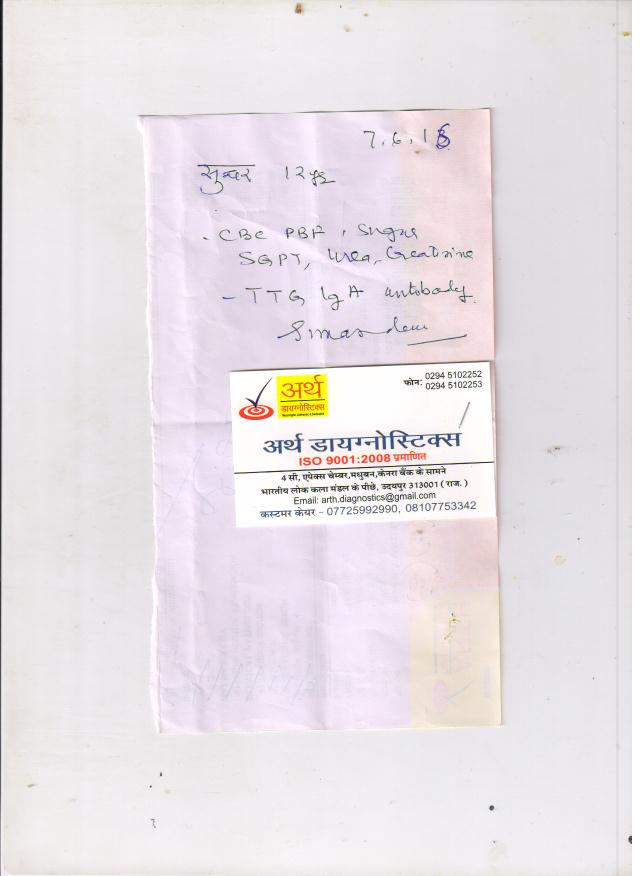 7.6.18
सुन्दर 12 yr
- CBC PBF, Sugar
SGPT, Urea, Creatinine
- TTG IgA antibody
अर्थ
डायग्नोस्टिक्स
फोन: 0294 5102252
0294 5102253
अर्थ डायग्नोस्टिक्स
ISO 9001:2008 प्रमाणित
4 सी, एपेक्स चेम्बर,मधुबन,केनरा बैंक के सामने
भारतीय लोक कला मंडल के पीछे, उदयपुर 313001 ( राज. )
Email: arth.diagnostics@gmail.com
कस्टमर केयर - 07725992990, 08107753342